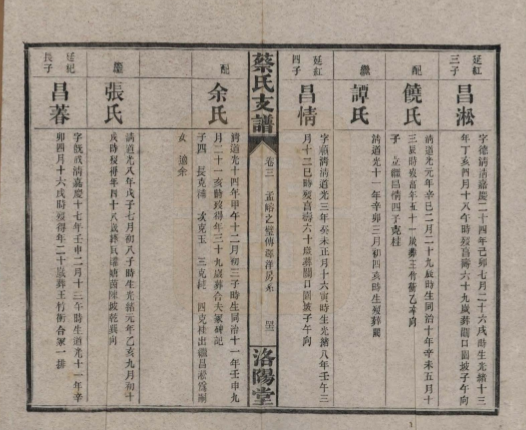 延紅三子
昌淞
字德清清嘉慶二十四年己卯七月二十六戌時生光緒十三
年丁亥四月十八午時歿爲壽六十九歲葬關口園坡子午向
配
饒氏
清道光元年辛巳二月二十九歲時生同治十年辛未五月十
三辰時歿爲年五十一歲葬王竹衝乙辛向
子 立繼昌情四子克桂
繼
譚氏
清道光十一年辛卯三月初四亥時生歿葬闕
延紅四子
昌情
字順清清道光三年癸未正月十六寅時生光緒八年壬午三
月十二巳時歿爲壽六十歲葬關口園坡子午向
蔡氏支譜
卷三
洛陽堂
配
余氏
清道光十四年甲午十二月初三子時生同治十一年壬申九
月二十一亥時歿得年三十九歲葬合夫冢碑記
子四 長克浦 次克玉 三克桂 四克桂出繼昌淞爲嗣
女 適余
繼
張氏
清道光八年戊子七月初八子時生光緒元年乙亥九月初十
戌時歿得年四十八歲葬
向
延紀長子
昌蓉
清嘉慶十七年壬申二月十三午時生道光十一年辛
卯四月十六戌時歿得年二十歲葬王竹衝合冢一排